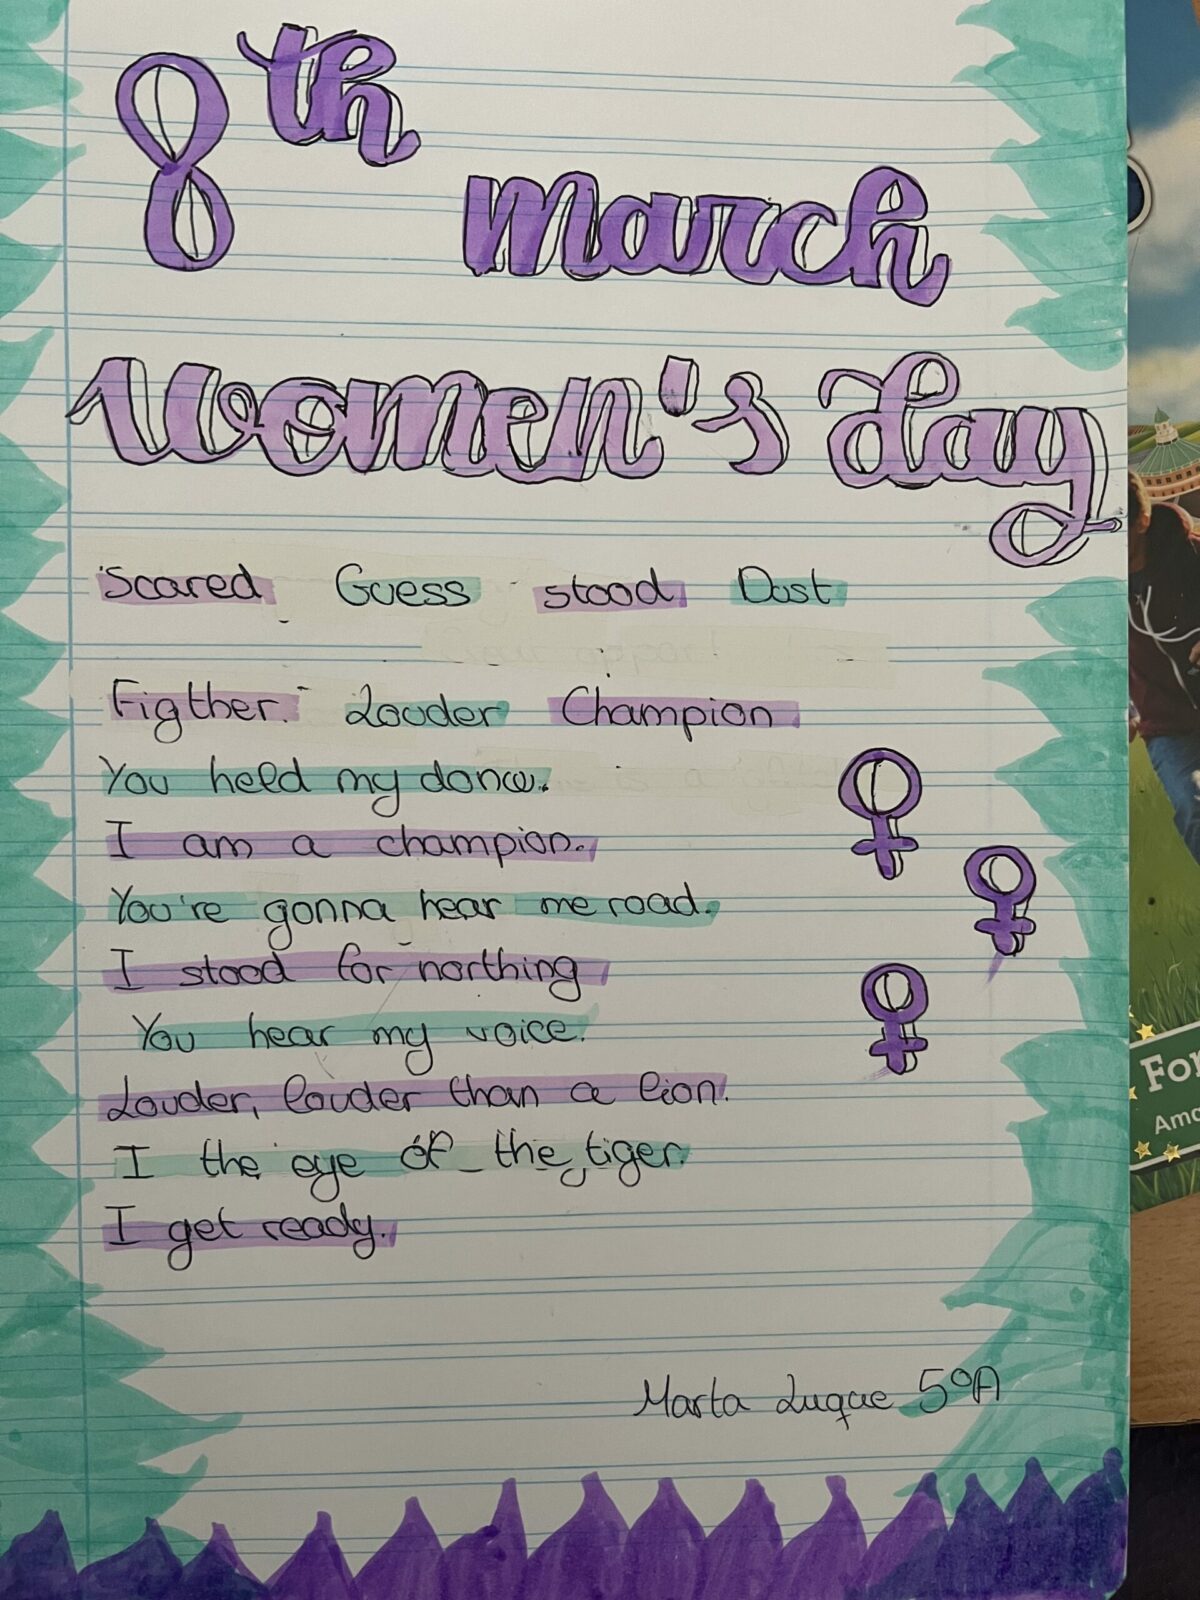 8th
march
women's day
Scared Guess stood Dust
Figther. Louder Champion
You held my
I am a champion.
You're gonna hear me road.
I stood for northing
You hear my voice.
Louder, louder than a lion.
I the eye of the tiger.
I get ready.
Marta Luque 5ºA
For
Ama